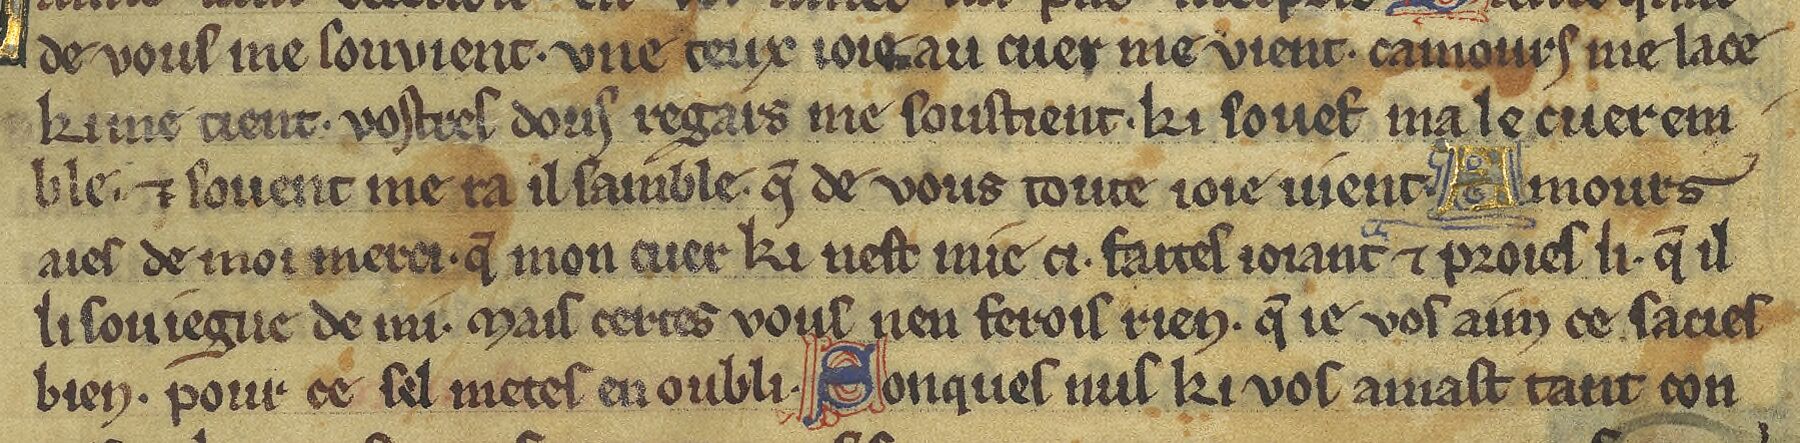 de vous me souvient · vne teux ioie au cuer me vient · camours me lace
ki me tient · vostres dous regars me soustient · ki souef ma le cuer em
ble · ⁊ souent me ra il samble · q̃ de vous toute ioie uient · Amours
aies de moi merci · q̃ mon cuer ki nest mie ci · faites ioiant ⁊ proies li · q̃ il
li souiegne de mi · Mais certes vous nen ferois rien · q̃ ie vos aim ce sacies
bien · pour ce sel metes en oubli · Sonques nus ki vos amast tant con